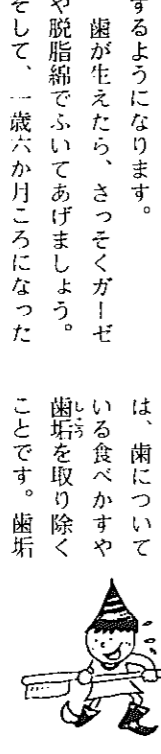 するようになります。
歯が生えたら、さっそくガーゼ
や脱脂綿でふいてあげましょう。
そして、一歳六か月ころになった
は、歯について
いる食べかすや
歯垢しこうを取り除く
ことです。歯垢